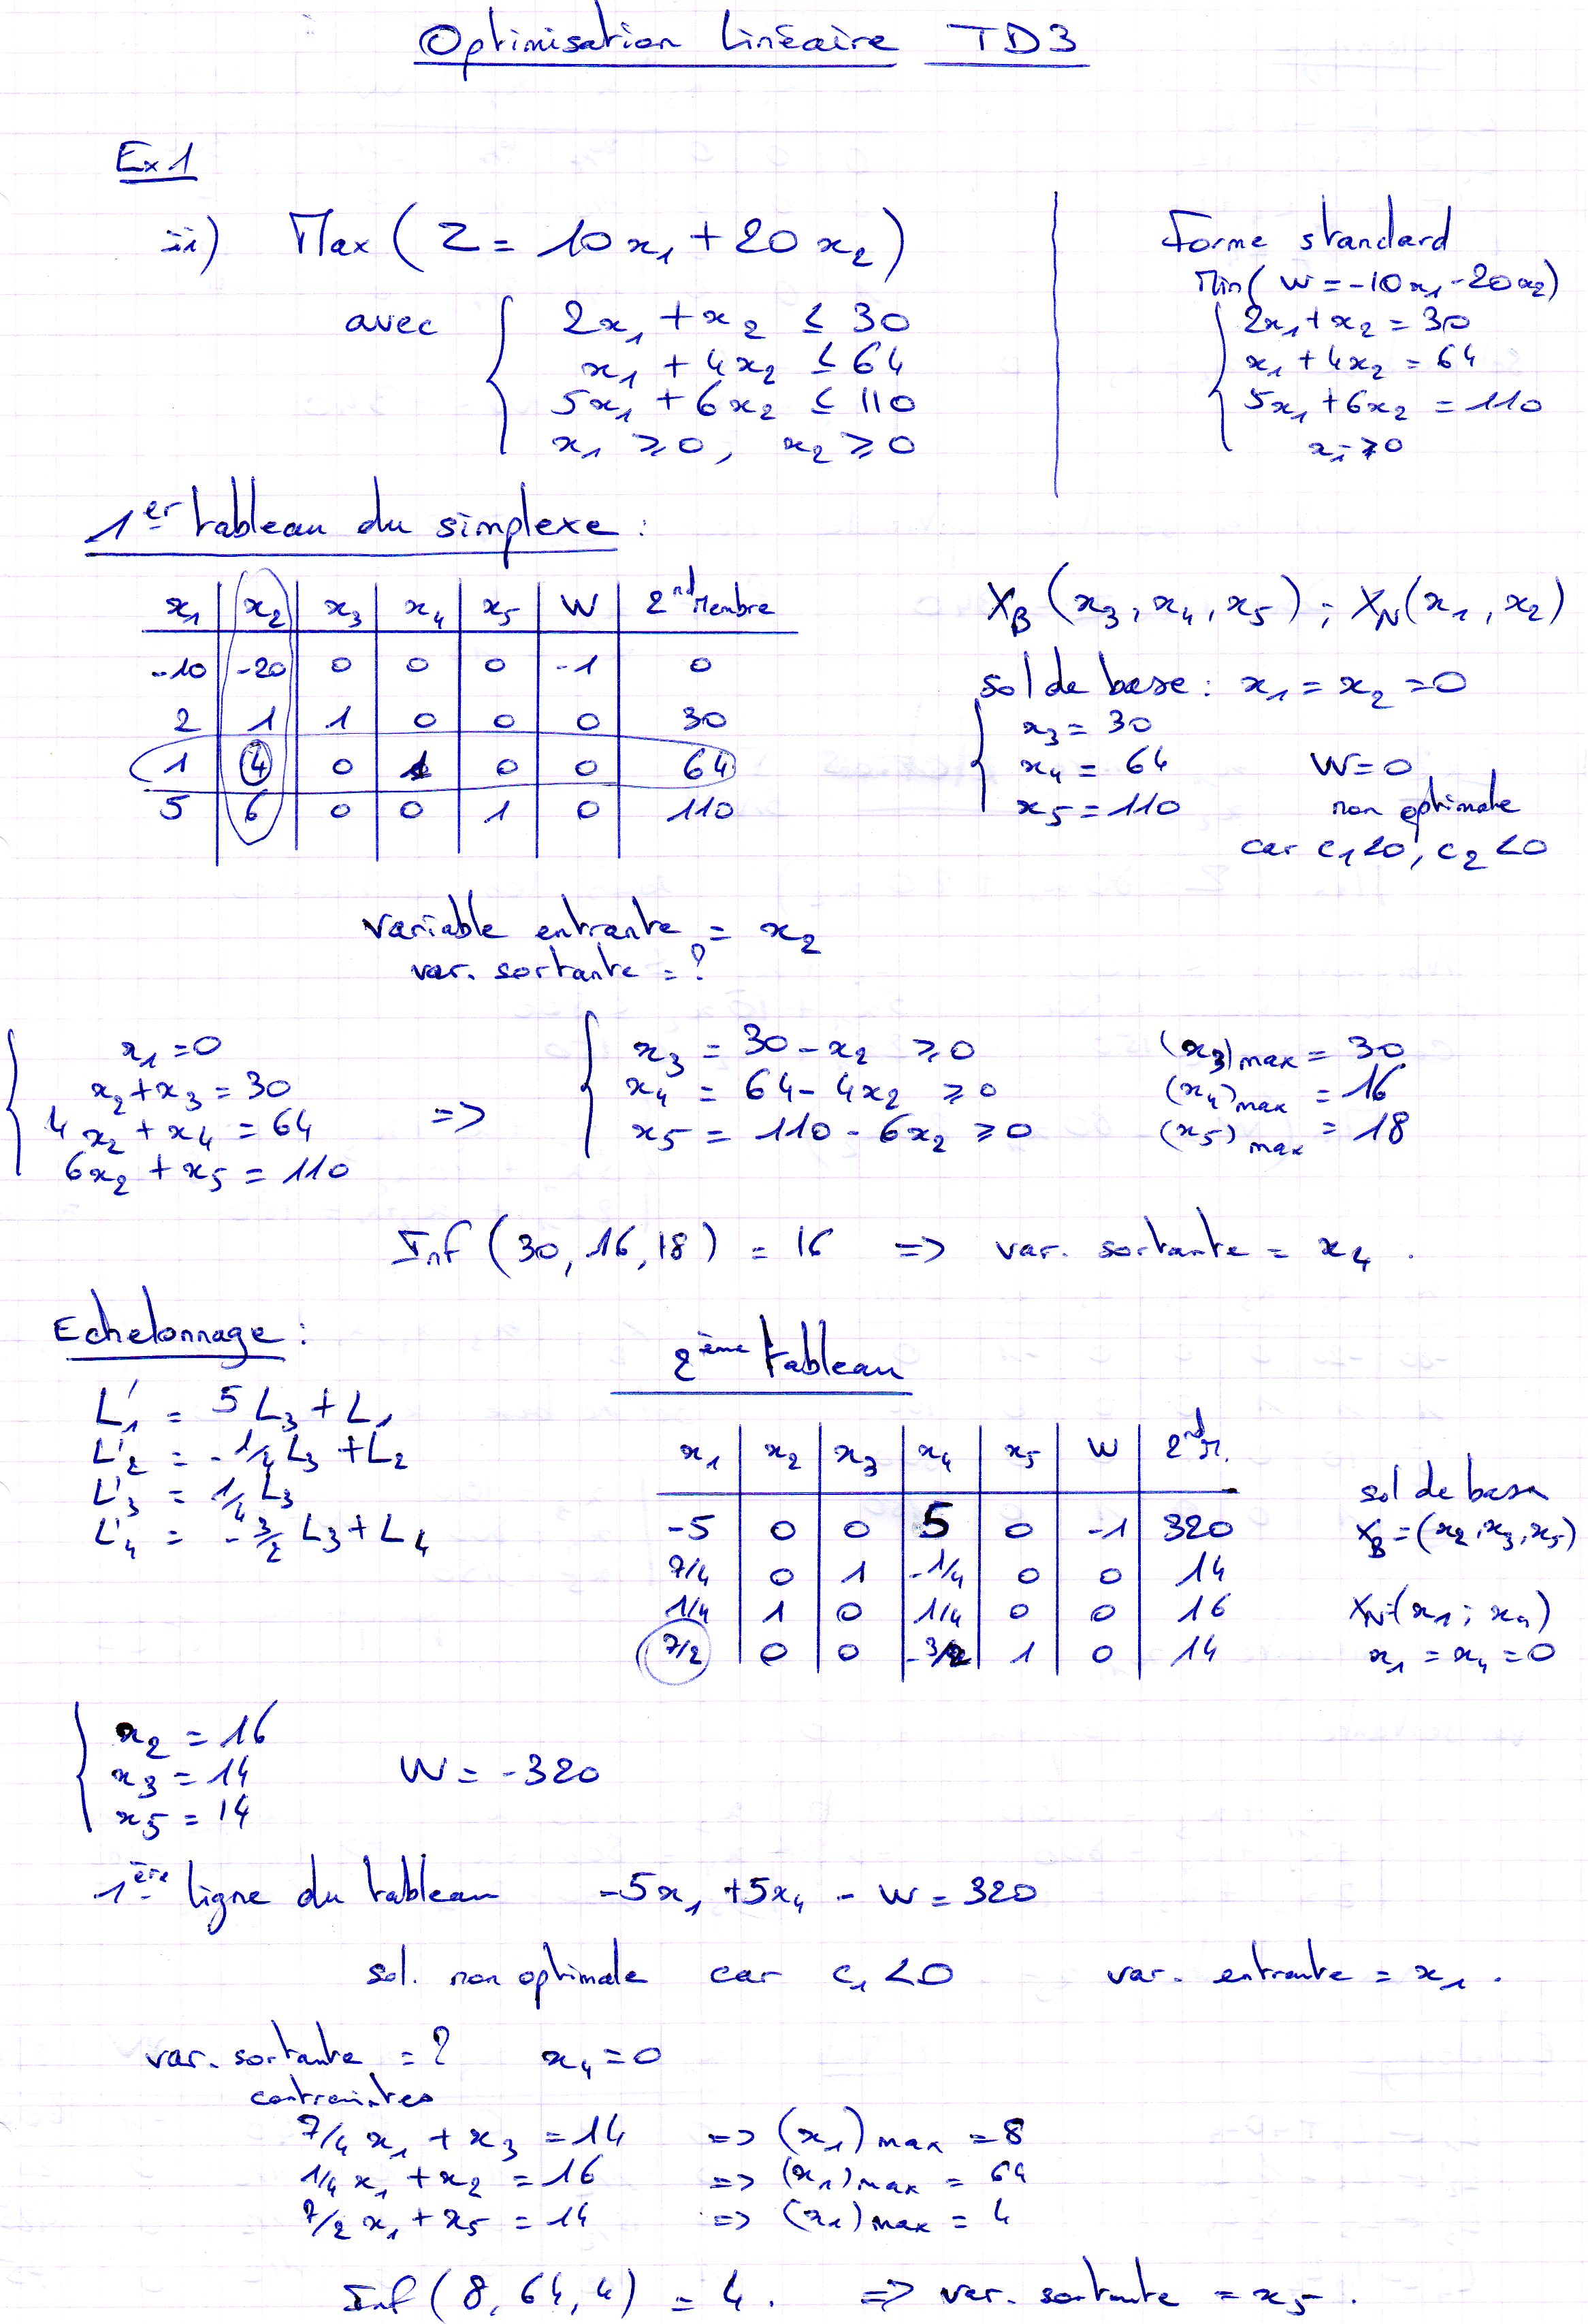 Optimisation Linéaire TD3
Ex 1
ii) Max ( Z = 10x₁ + 20x₂ )
avec { 2x₁ + x₂ ≤ 30
x₁ + 4x₂ ≤ 64
5x₁ + 6x₂ ≤ 110
x₁ ≥ 0, x₂ ≥ 0
Forme standard
Min ( W = -10x₁ - 20x₂ )
{ 2x₁ + x₂ = 30
x₁ + 4x₂ = 64
5x₁ + 6x₂ = 110
xᵢ ≥ 0
1er tableau du simplexe :
x₁ | x₂ | x₃ | x₄ | x₅ | W | 2nd Membre
-10 | -20 | 0 | 0 | 0 | -1 | 0
2 | 1 | 1 | 0 | 0 | 0 | 30
1 | 4 | 0 | 1 | 0 | 0 | 64
5 | 6 | 0 | 0 | 1 | 0 | 110
X_B (x₃, x₄, x₅) ; X_N (x₁, x₂)
sol de base : x₁ = x₂ = 0
{ x₃ = 30
x₄ = 64 W = 0
x₅ = 110 non optimale
car c₁<0, c₂<0
variable entrante = x₂
var. sortante = ?
{ x₁ = 0
x₂ + x₃ = 30
4x₂ + x₄ = 64
6x₂ + x₅ = 110
=> { x₃ = 30 - x₂ ≥ 0 (x₃)max = 30
x₄ = 64 - 4x₂ ≥ 0 (x₄)max = 16
x₅ = 110 - 6x₂ ≥ 0 (x₅)max = 18
Inf (30, 16, 18) = 16 => var. sortante = x₄ .
Echelonnage :
L'₁ = 5 L₃ + L₁
L'₂ = -1/4 L₃ + L₂
L'₃ = 1/4 L₃
L'₄ = -3/2 L₃ + L₄
2ème tableau
x₁ | x₂ | x₃ | x₄ | x₅ | W | 2nd M.
-5 | 0 | 0 | 5 | 0 | -1 | 320
7/4 | 0 | 1 | -1/4 | 0 | 0 | 14
1/4 | 1 | 0 | 1/4 | 0 | 0 | 16
7/2 | 0 | 0 | -3/2 | 1 | 0 | 14
sol de base
X_B = (x₂, x₃, x₅)
X_N = (x₁ ; x₄)
x₁ = x₄ = 0
{ x₂ = 16
x₃ = 14 W = -320
x₅ = 14
1ère ligne du tableau -5x₁ + 5x₄ - W = 320
sol. non optimale car c₁ < 0 var. entrante = x₁ .
var. sortante = ? x₄ = 0
contraintes
7/4 x₁ + x₃ = 14 => (x₁)max = 8
1/4 x₁ + x₂ = 16 => (x₁)max = 64
7/2 x₁ + x₅ = 14 => (x₁)max = 4
Inf (8, 64, 4) = 4 . => var. sortante = x₅ .